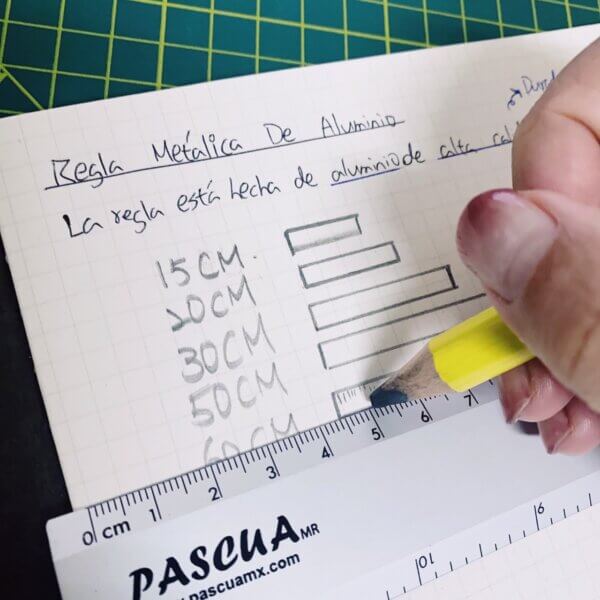 Regla Metálica De Aluminio
La regla está hecha de aluminio de alta
15CM.
20CM
30CM
50CM
60CM
0 cm 1 2 3 4 5 6 7
PASCUA MR
www.pascuamx.com
10 9